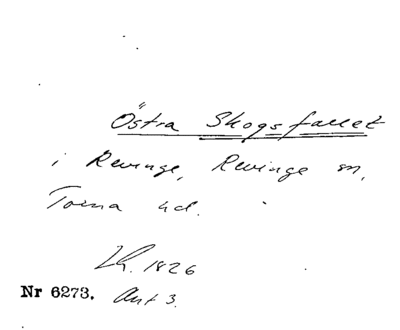 Östra Skogsfallet
i Revinge, Revinge sn,
Torna hd.
Lh. 1826
Nr 6273. Ant 3.